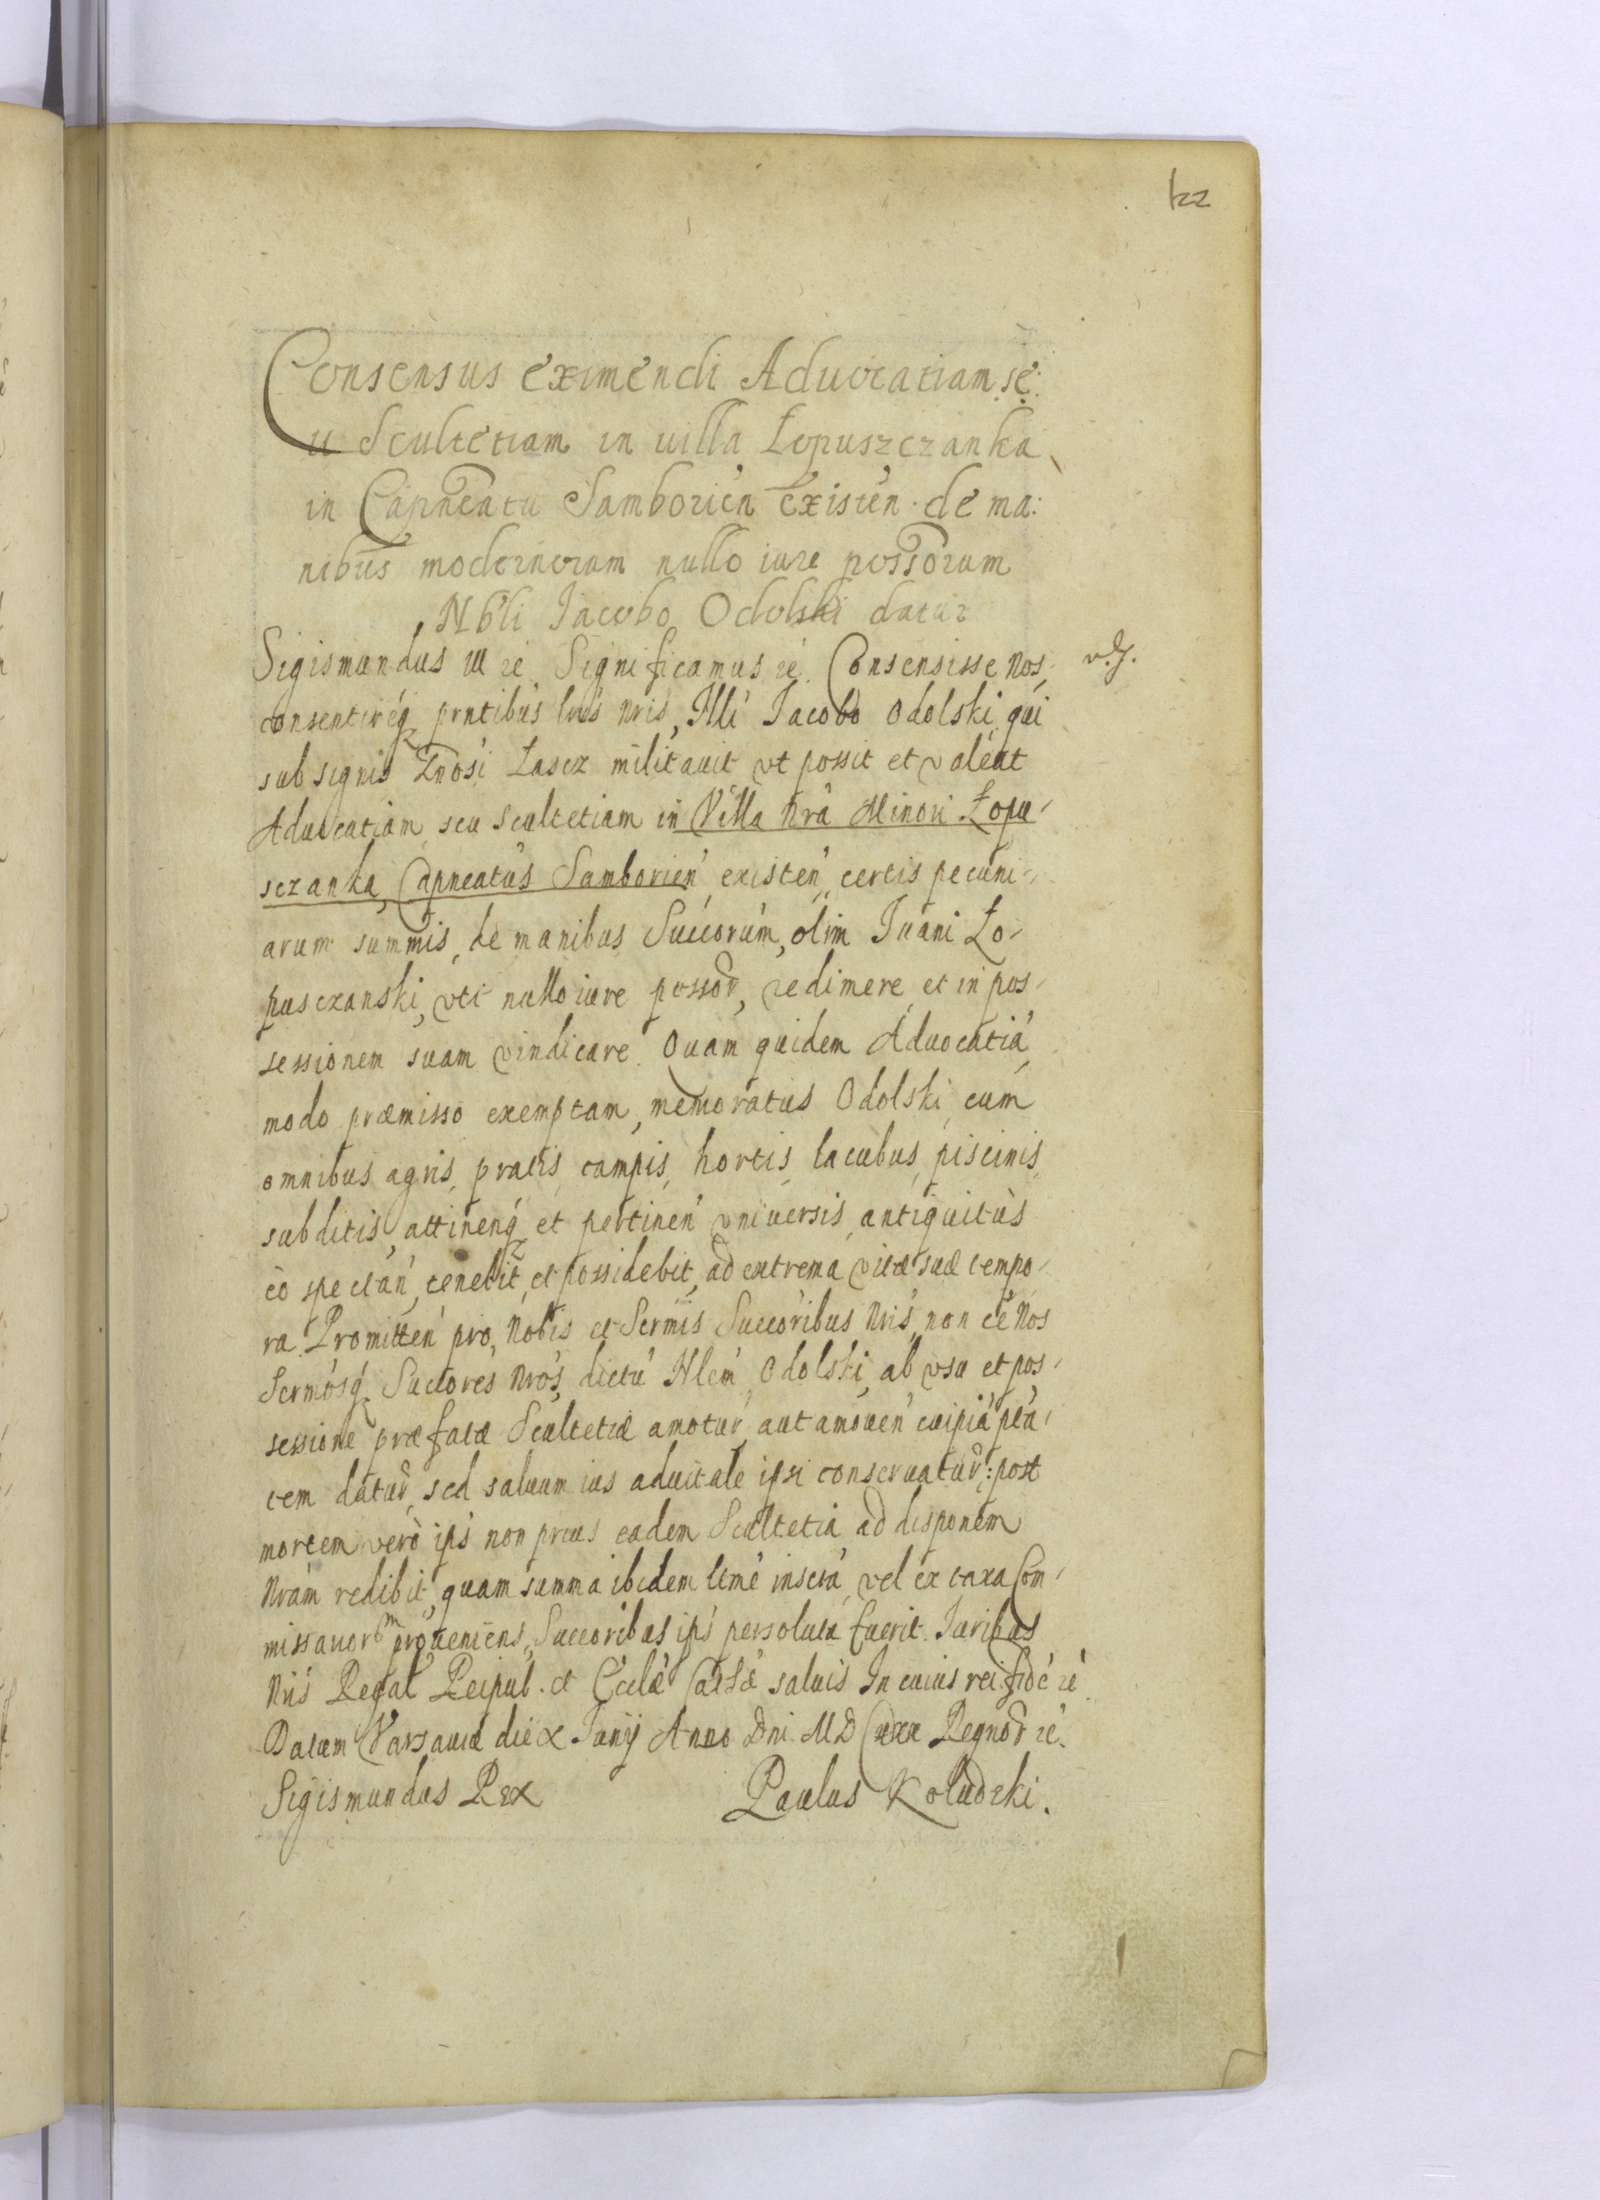 122
Consensus eximendi Aduocatiam se:
u Scultetiam in uilla Łopuszczanka
in Capneatu Samborien existen. de ma:
nibus modernorum nullo iure possorum
Nbli Jacobo Odolski datur
Sigismundus III rè Significamus rè. Consensisse nos,
consentireq prntibus lris nris, Nli Jacobo Odolski qui
sub signis Gnosi Łascz militauit vt possit et valeat
Aduocatiam seu Scultetiam in Villa nra Minori Łopu-
sczanka, Capneatus Samborien existen certis pecuni-
arum summis, de manibus Succorum, olim Iuani Ło-
pusczanski, vti nullo iure possor, redimere et in pos-
sessionem suam vindicare. Quam quidem Aduocatiá
modo præmisso exemptam, memoratus Odolski cum
omnibus agris, pratis, campis, hortis, lacubus, piscinis,
subditis, attinenq et pertinen vniuersis, antiquitùs
eò spectan, tenebit, et possidebit, ad extrema vitæ suæ tempo-
ra. Promitten pro Nobis et Sermis Succoribus Nris, non eé Nos
Sermosq Succores Nros, dictu Nlem Odolski, ab vsu et pos-
sessione præfatæ Scultetiæ amotur, aut amouen cuipiá ptá-
tem datur, sed saluum ius aduitale ipsi conseruatur: post
mortem verò ips non prius eadem Scultetia ad disponem
Nram redibit, quam summa ibidem ltmè inscra, vel ex taxa Com-
missarior proueniens, Succoribus ips persoluta fuerit. Iuribus
Nris Regal Reipul. et Ecclæ Cathæ saluis In cuius rei fidè rè
Datum Varsauiæ die X Junij Anno Dni MDCxxx Regnor rè.
Sigismundus Rex Paulus Koludzki.